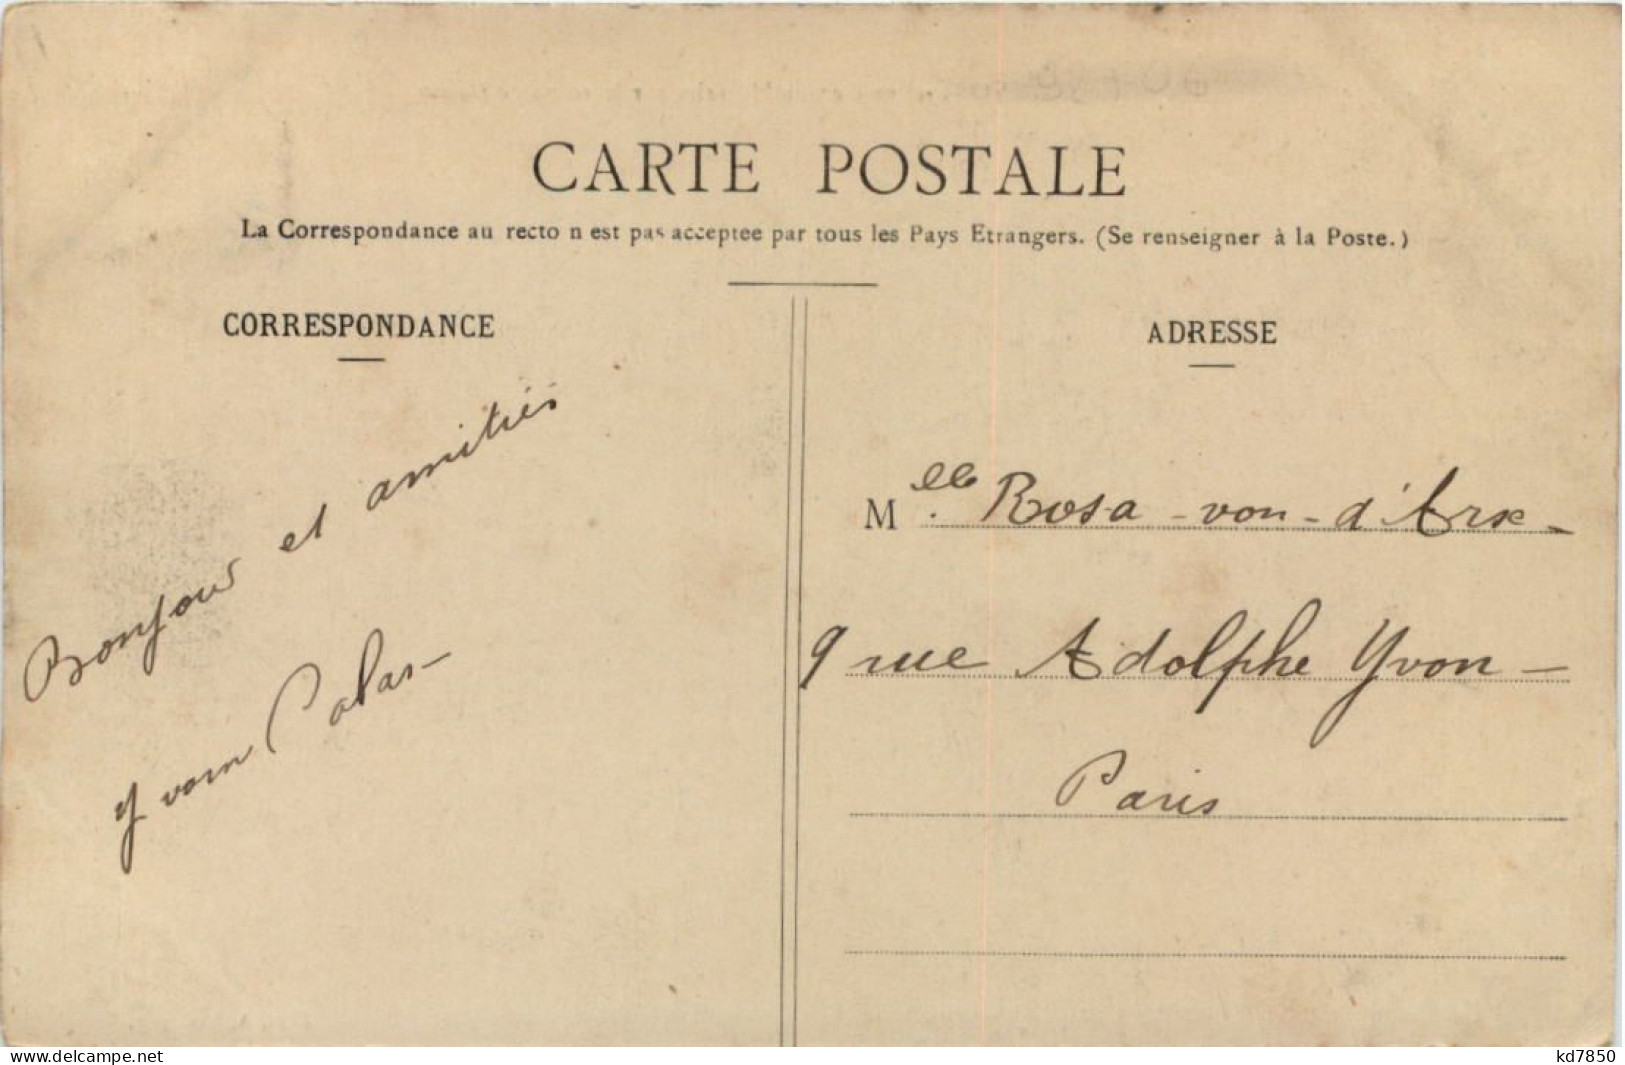 CARTE POSTALE
La Correspondance au recto n est pas acceptee par tous les Pays Etrangers. (Se renseigner à la Poste.)
CORRESPONDANCE
Bonjour et amitiés
Yvonn
ADRESSE
Mlle. Rosa - von - d'Arx -
9 rue Adolphe Yvon -
Paris
www.delcampe.net
kd7850